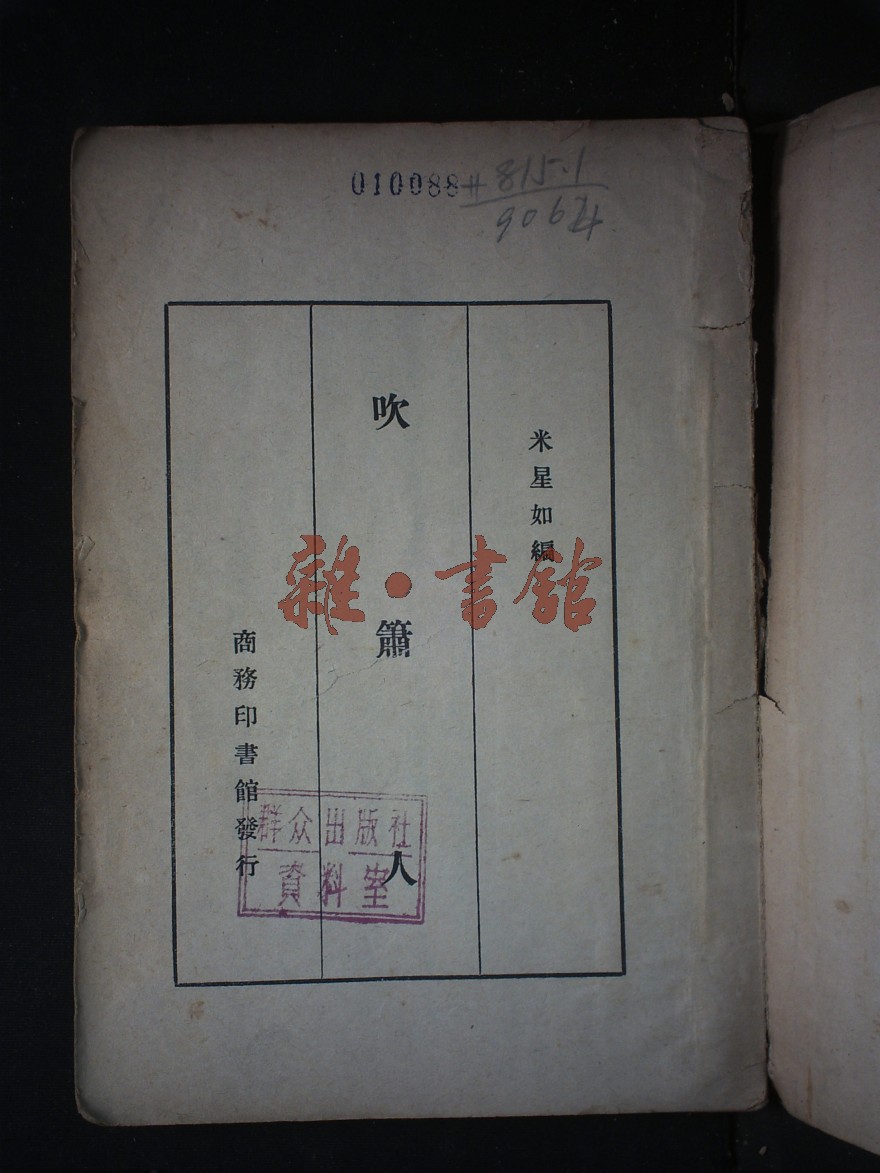 010088
# 815.1
9064
米星如編
吹簫人
商務印書館發行
雜·書館
群众出版社
資料室